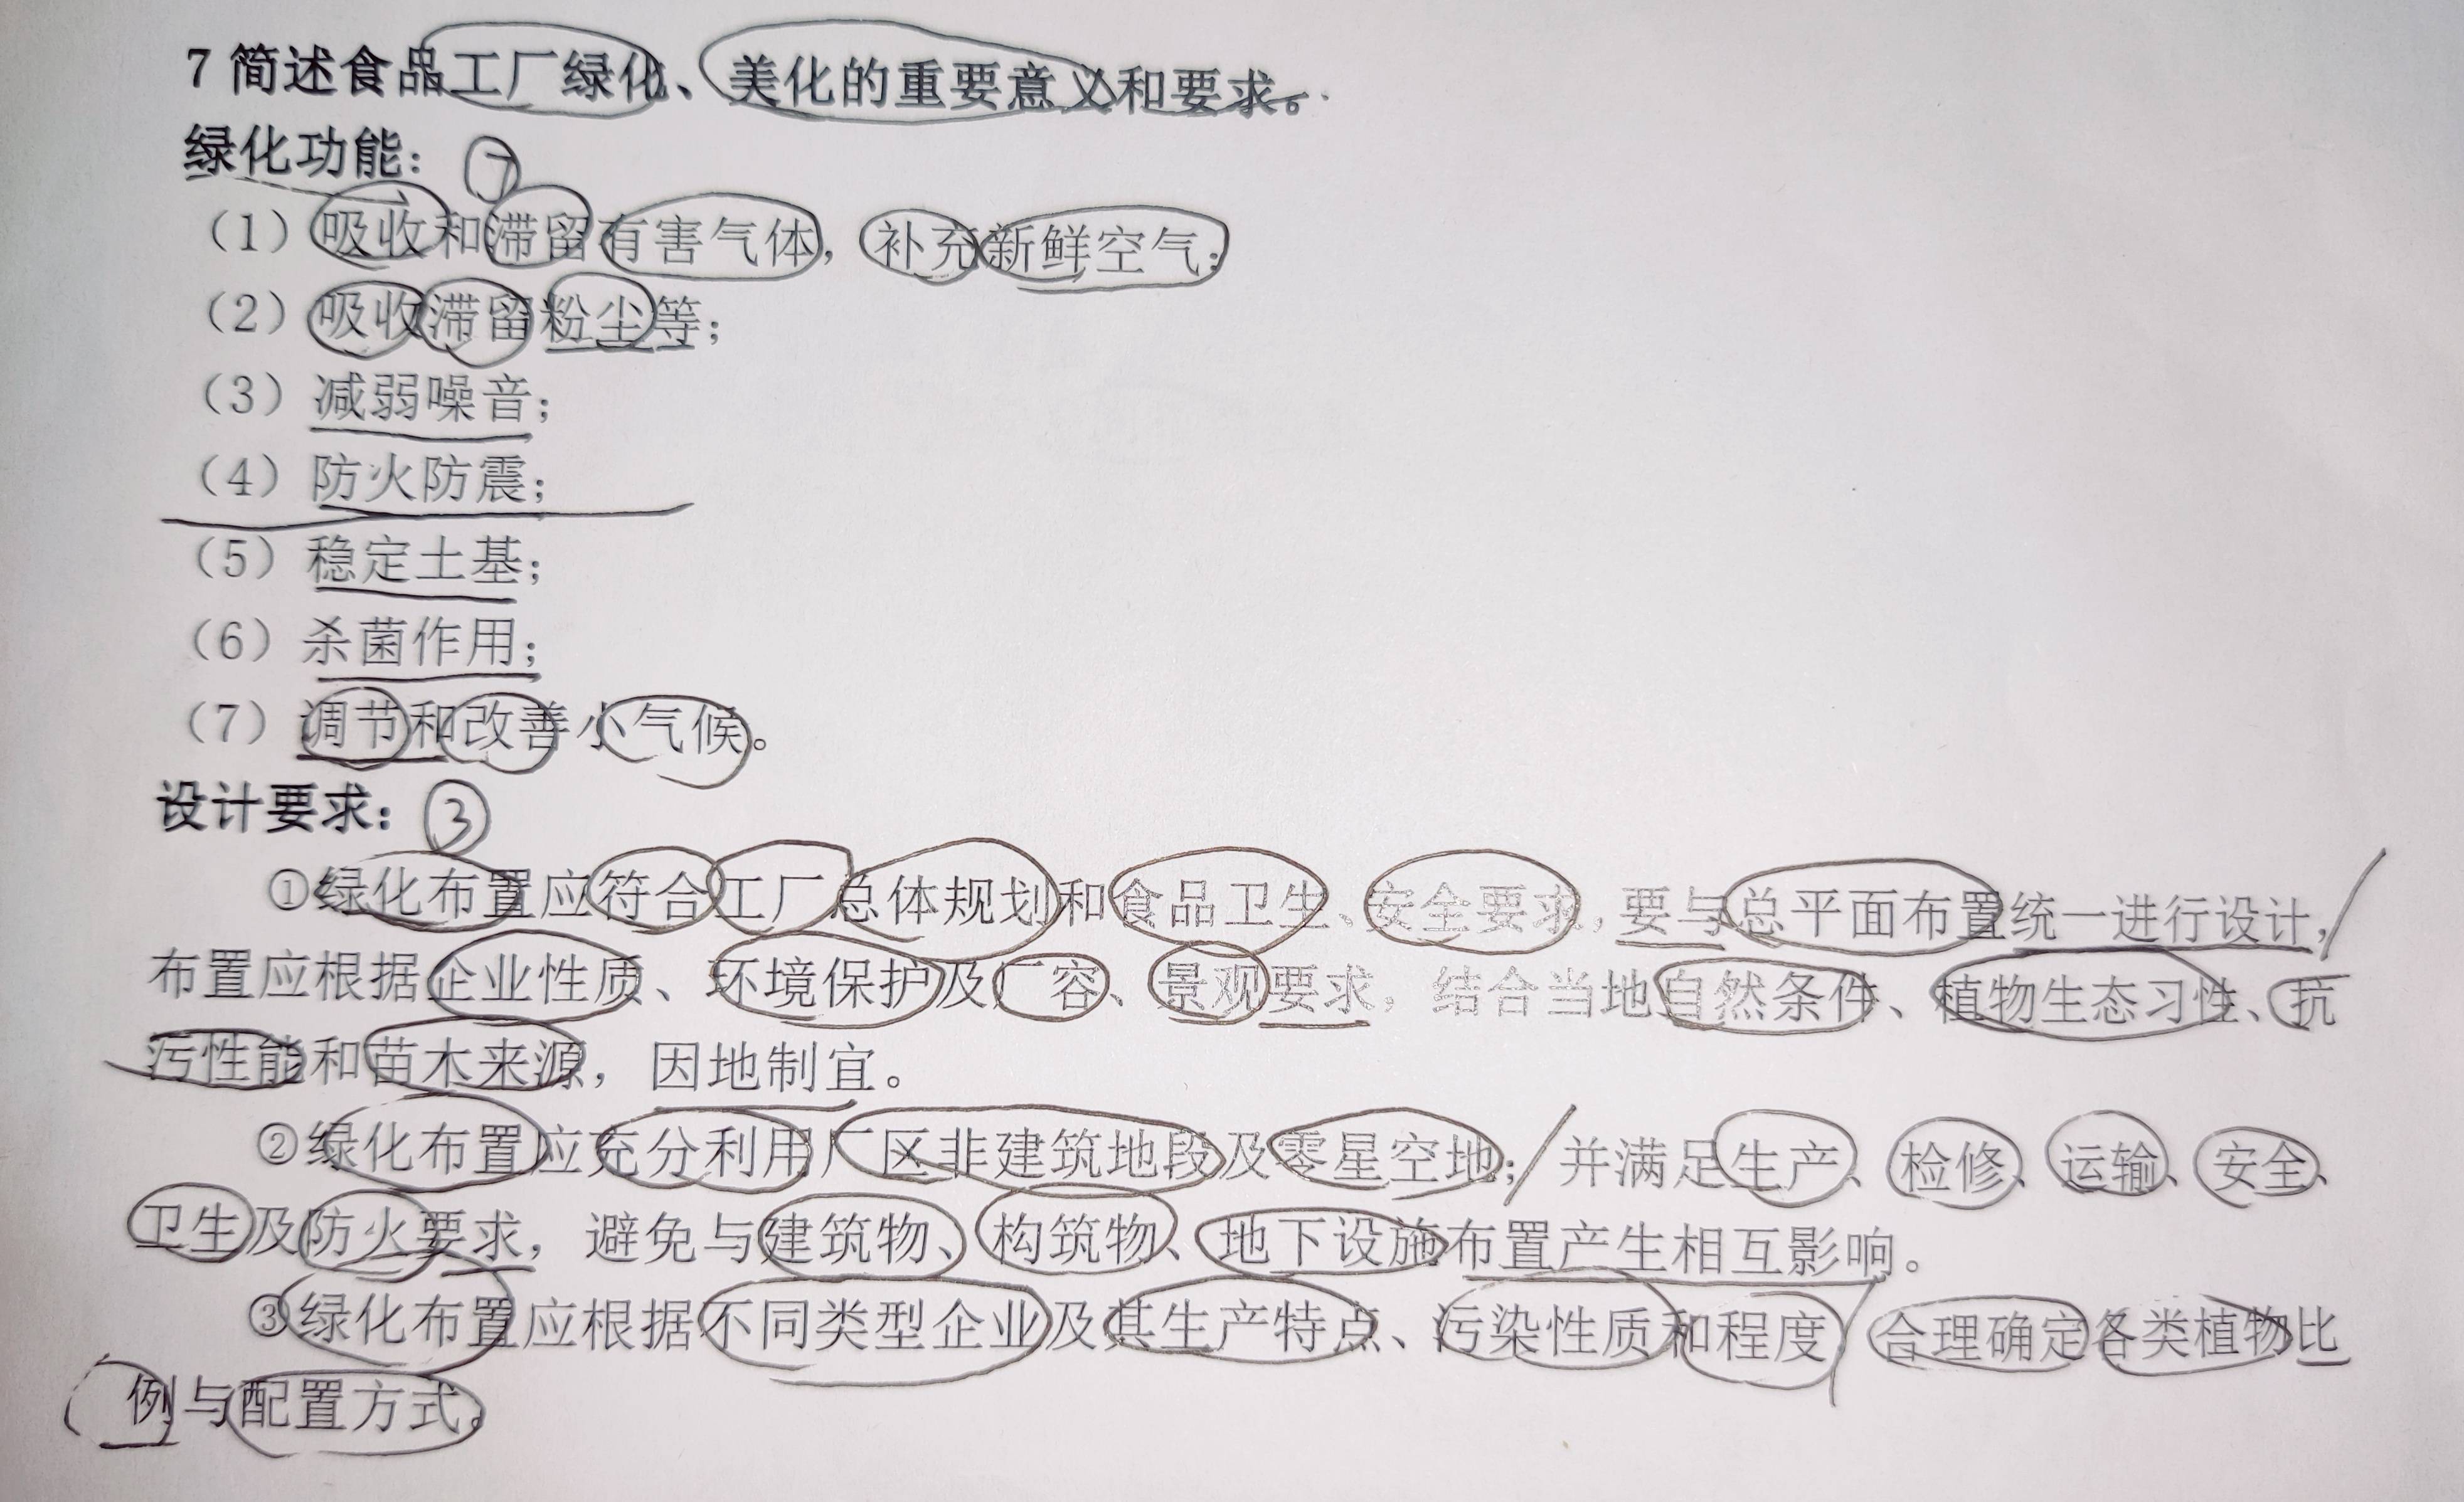 7 简述食品工厂绿化、美化的重要意义和要求。
绿化功能: ⑦
（1）吸收和滞留有害气体，补充新鲜空气;
（2）吸收滞留粉尘等;
（3）减弱噪音;
（4）防火防震;
（5）稳定土基;
（6）杀菌作用;
（7）调节和改善小气候。
设计要求: ③
①绿化布置应符合工厂总体规划和食品卫生、安全要求,要与总平面布置统一进行设计,
布置应根据企业性质、环境保护及厂容、景观要求，结合当地自然条件、植物生态习性、抗
污性能和苗木来源，因地制宜。
②绿化布置应充分利用厂区非建筑地段及零星空地; 并满足生产、检修、运输、安全、
卫生及防火要求，避免与建筑物、构筑物、地下设施布置产生相互影响。
③绿化布置应根据不同类型企业及其生产特点、污染性质和程度 合理确定各类植物比
例与配置方式。